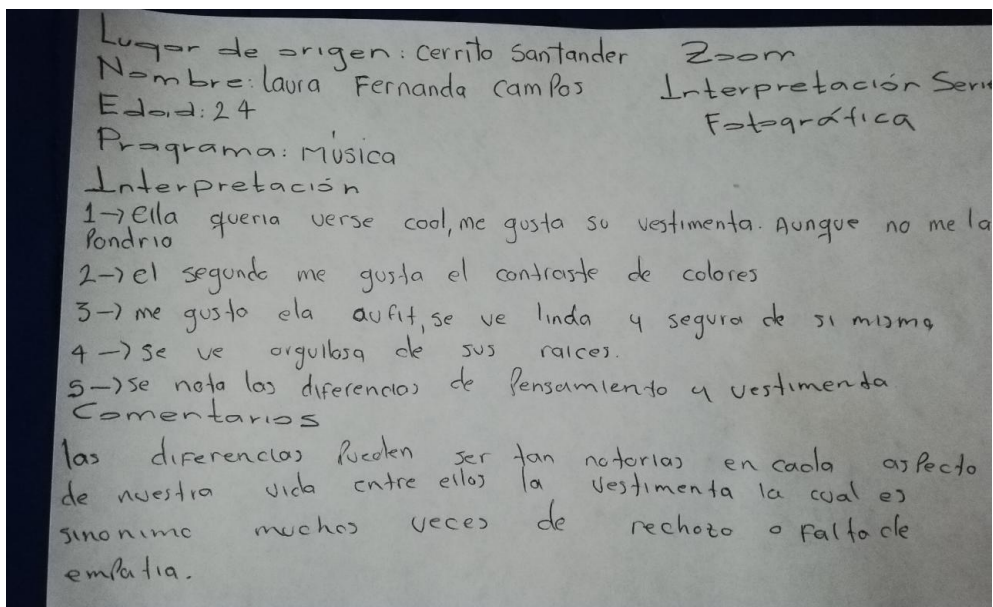 Lugar de origen: Cerrito Santander
Zoom
Nombre: laura Fernanda Campos
Interpretación Serie
Edad: 24
Fotográfica
Programa: Música
Interpretación
1→ Ella queria verse cool, me gusta su vestimenta. Aunque no me la
Pondrio
2→ el segundo me gusta el contraste de colores
3→ me gusto ela aufit, se ve linda y segura de si misma
4→ se ve orgullosa de sus raices.
5→ se nota las diferencias de Pensamiento y vestimenta
Comentarios
las diferencias Pueden ser tan notorias en cada aspecto
de nuestra vida entre ellos la vestimenta la cual es
sinonimo muchos veces de rechazo o falta de
empatia.